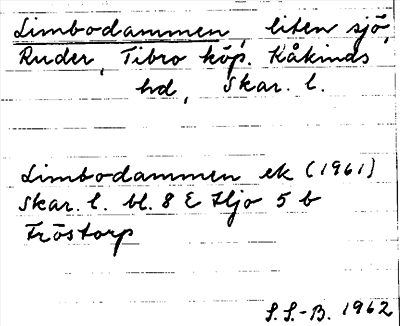 Limbodammen, liten sjö,
Ruder, Tibro köp. Kåkinds
hd, Skar. l.
Limbodammen ek (1961)
Skar. l. bl. 8 E Hjo 5 b
Fröstorp
S.S.-B. 1962